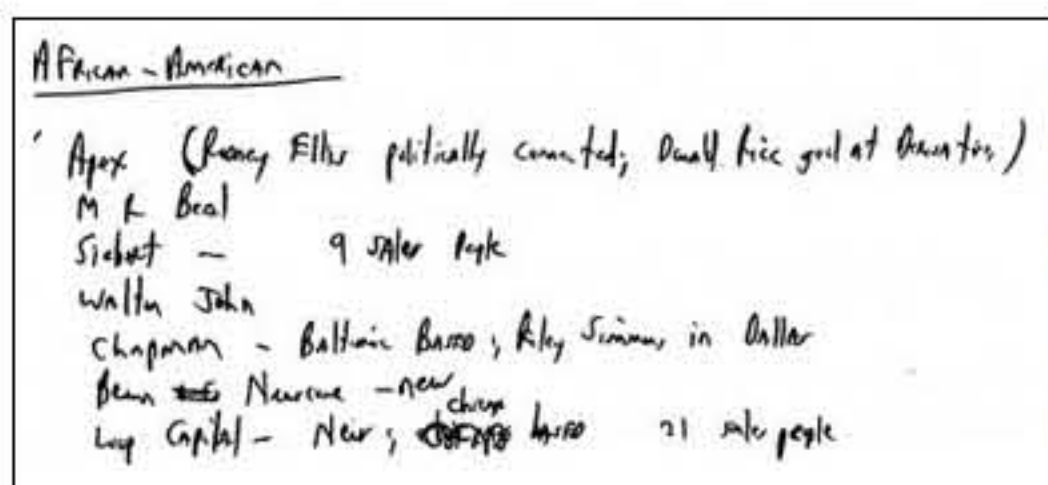 African-American
Apex (Rodney Ellis politically connected; Donald Rice good at
M R Beal
Siebert - 9 sales People
Walton John
Chapman - Baltimore Based; Riley Simmons in Dallas
Newsome - new
Loop Capital - New; chicago based 21 sales people